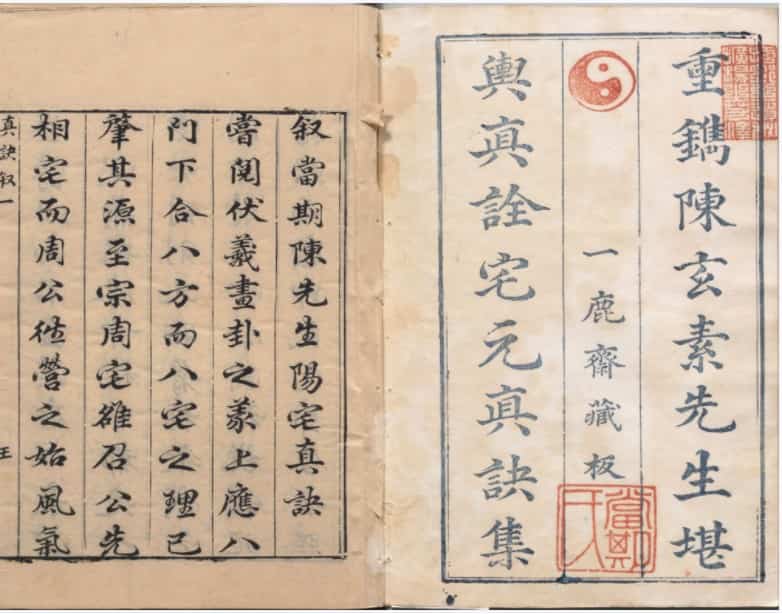 重鐫陳玄素先生堪
一鹿齋藏板
輿真詮宅元真訣集
當期氏
叙當期陳先生陽宅真訣
嘗閱伏羲畫卦之象上應八
門下合八方而八宅之理已
肇其源至宗周宅雒召公先
相宅而周公徃營之始風氣
真訣叙一